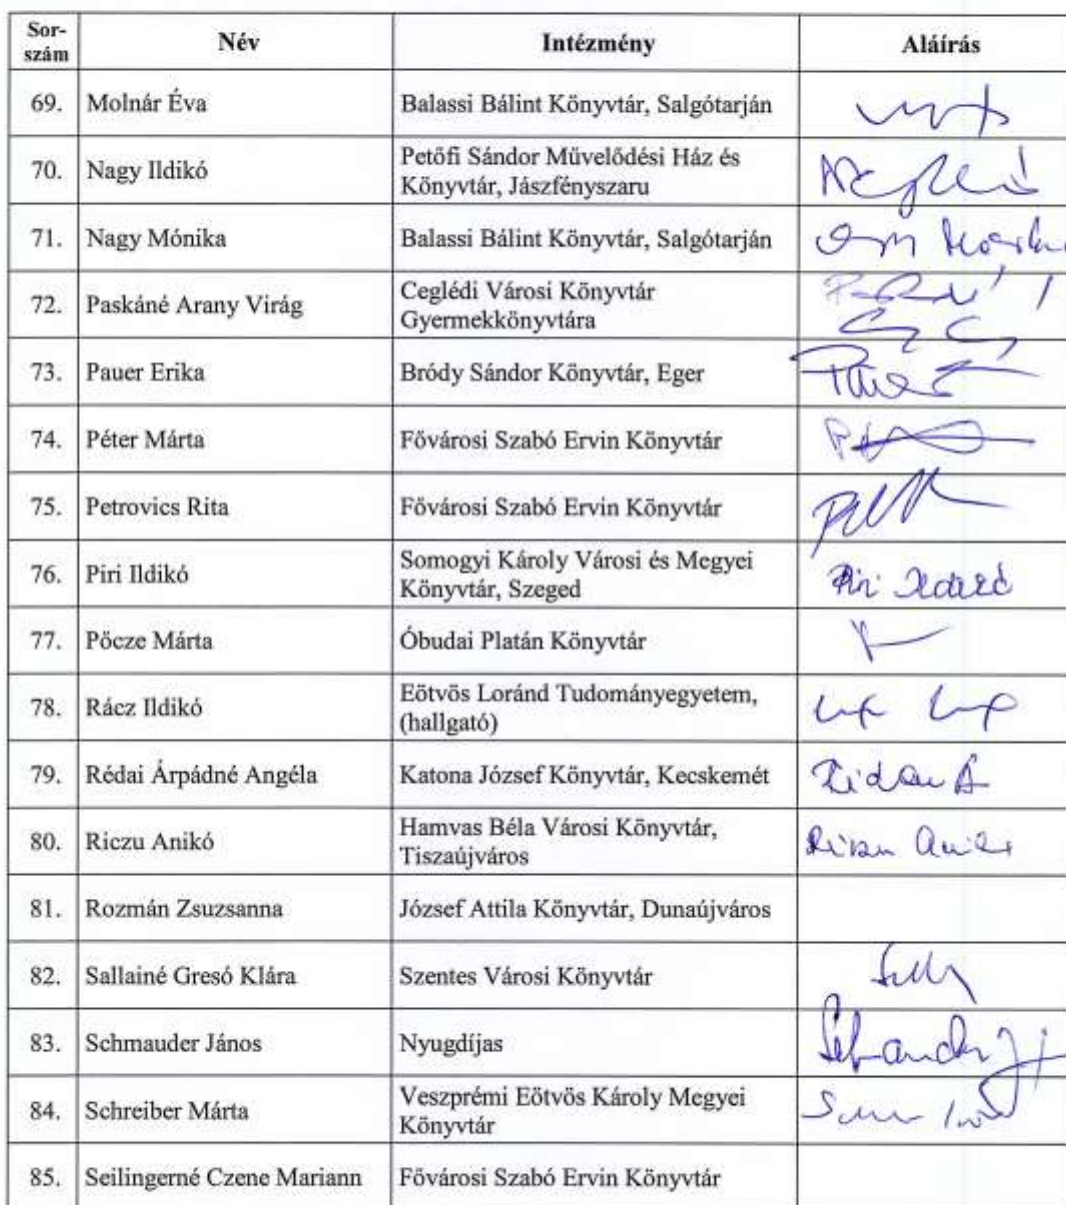 Sor-
szám
Név
Intézmény
Aláírás
69. Molnár Éva Balassi Bálint Könyvtár, Salgótarján
70. Nagy Ildikó Petőfi Sándor Művelődési Ház és
Könyvtár, Jászfényszaru
71. Nagy Mónika Balassi Bálint Könyvtár, Salgótarján
72. Paskáné Arany Virág Ceglédi Városi Könyvtár
Gyermekkönyvtára
73. Pauer Erika Bródy Sándor Könyvtár, Eger
74. Péter Márta Fővárosi Szabó Ervin Könyvtár
75. Petrovics Rita Fővárosi Szabó Ervin Könyvtár
76. Piri Ildikó Somogyi Károly Városi és Megyei
Könyvtár, Szeged
Piri Ildikó
77. Pőcze Márta Óbudai Platán Könyvtár
78. Rácz Ildikó Eötvös Loránd Tudományegyetem,
(hallgató)
79. Rédai Árpádné Angéla Katona József Könyvtár, Kecskemét
80. Riczu Anikó Hamvas Béla Városi Könyvtár,
Tiszaújváros
81. Rozmán Zsuzsanna József Attila Könyvtár, Dunaújváros
82. Sallainé Gresó Klára Szentes Városi Könyvtár
83. Schmauder János Nyugdíjas
84. Schreiber Márta Veszprémi Eötvös Károly Megyei
Könyvtár
85. Seilingerné Czene Mariann Fővárosi Szabó Ervin Könyvtár